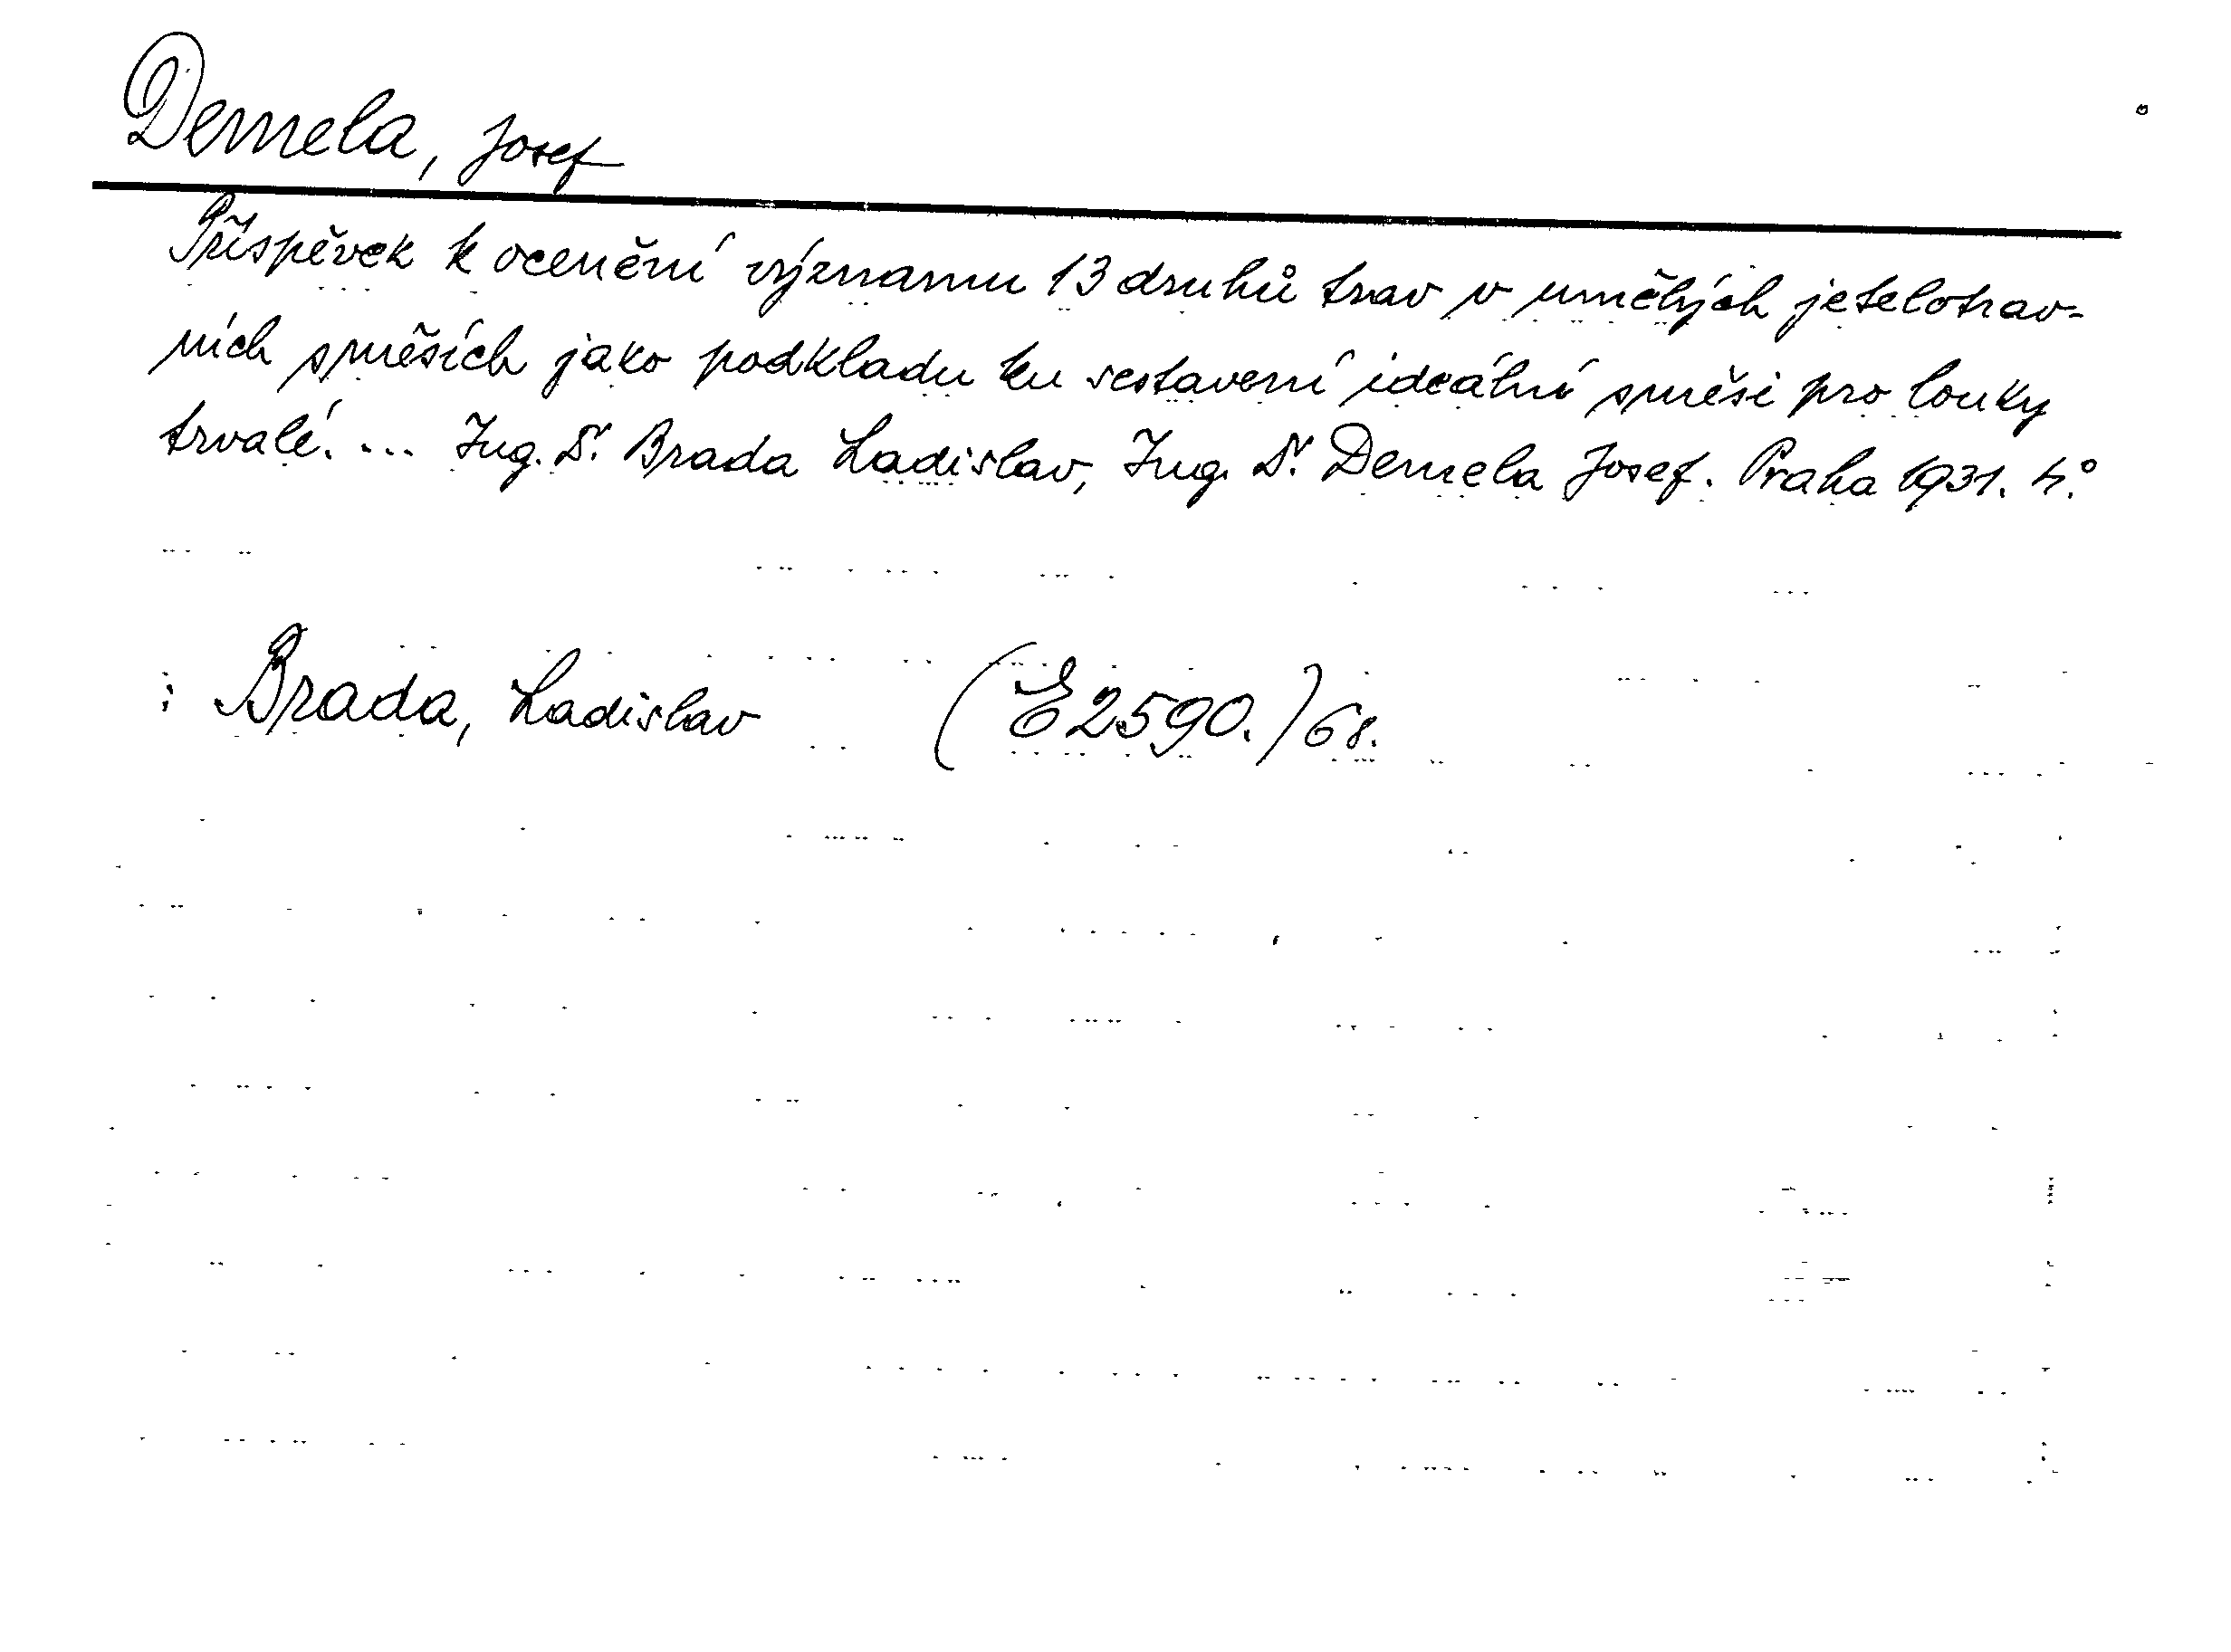 Demela, Josef
Příspěvek k ocenění významu 13 druhů trav v umělých jetelotrav-
ních směsích jako podkladu ku sestavení ideální směsi pro louky
trvalé. ... Ing. Dr. Brada Ladislav, Ing. Dr. Demela Josef. Praha 1931. 4.°
: Brada, Ladislav (E 2590.) 68.